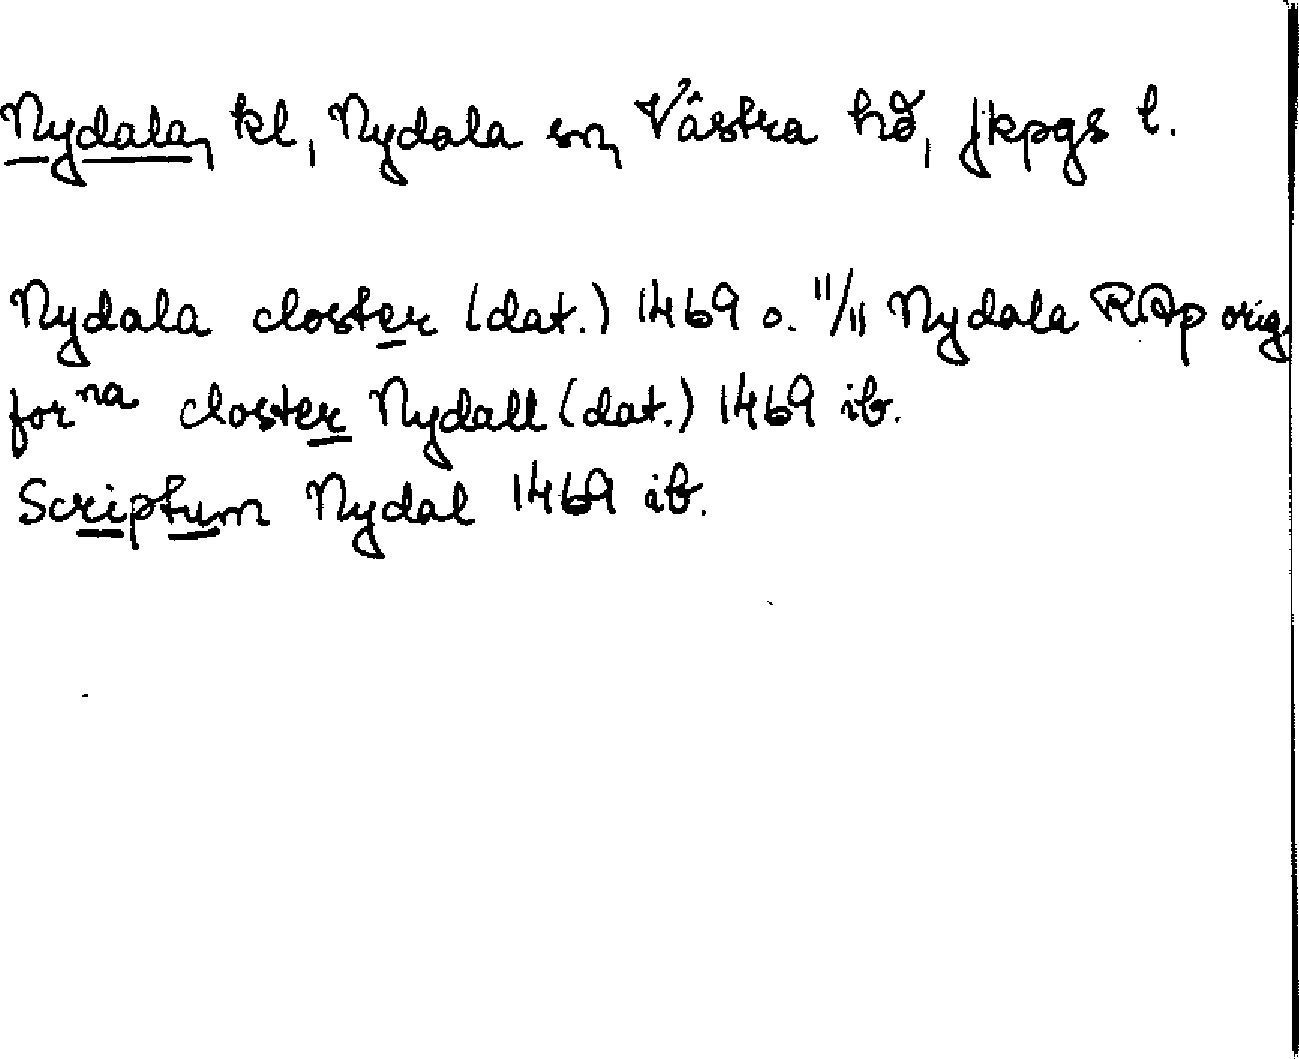 Nydala, kl, Nydala sn, Västra hd, Jkpgs l.
Nydala closter (dat.) 1469 o. 11/11 Nydala RAp orig.
for na closter Nydall (dat.) 1469 ib.
Scriptum Nydal 1469 ib.